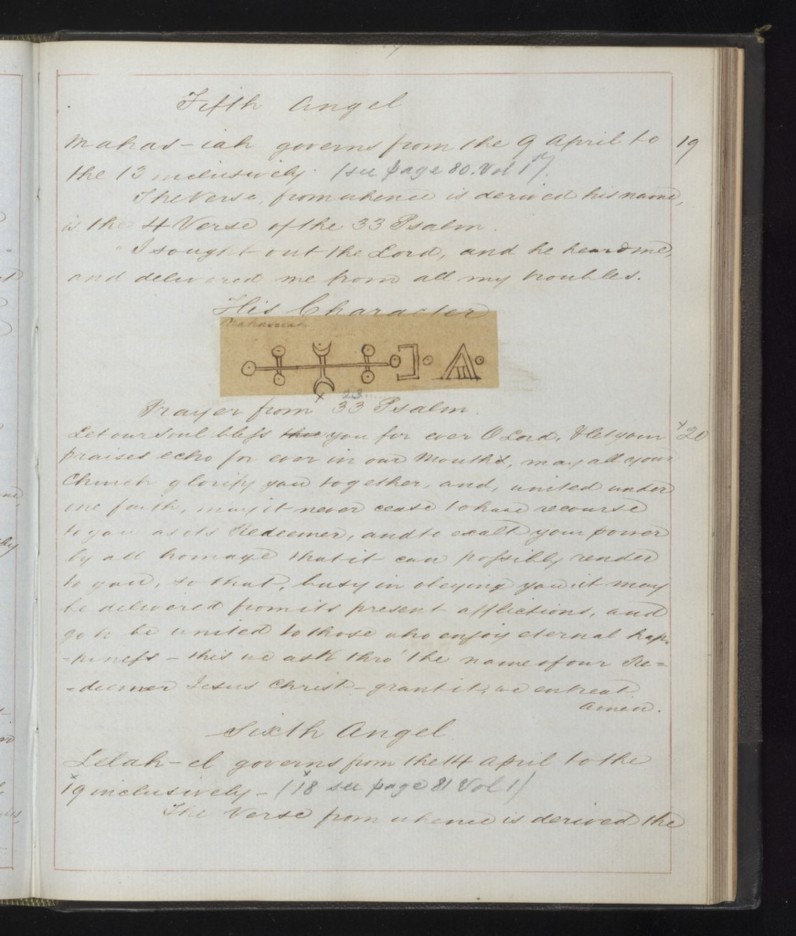 Fifth Angel
Mahas-iah governs from the 9 April to 19
the 13 inclusively. (see page 80. Vol 1st)
The Verse, from whence is derived his name,
is the 4 Verse of the 33 Psalm.
I sought out the Lord, and he heard me,
and delivered me from all my troubles.
His Character
Mahasiah
23
Prayer from x 33 Psalm.
Let our Soul bless thee you for ever O Lord, & let your x 20
praises echo for ever in our Mouths, may all your
Church glorify you together, and, united under
one faith, may it never cease to have recourse
to you as its Redeemer, and to exalt your power
by all homage that it can possibly render
to you, so that, busy in obeying you it may
be delivered from its present afflictions, and
go to be united to those who enjoy eternal hap-
-piness - this we ask thro' the name of our Re-
-deemer Jesus Christ - grant it; we entreat
Amen.
Sixth Angel
Lelah-el governs from the 14 April to the
x 19 inclusively - (x 18 see page 81 Vol 1)
The Verse from whence is derived the